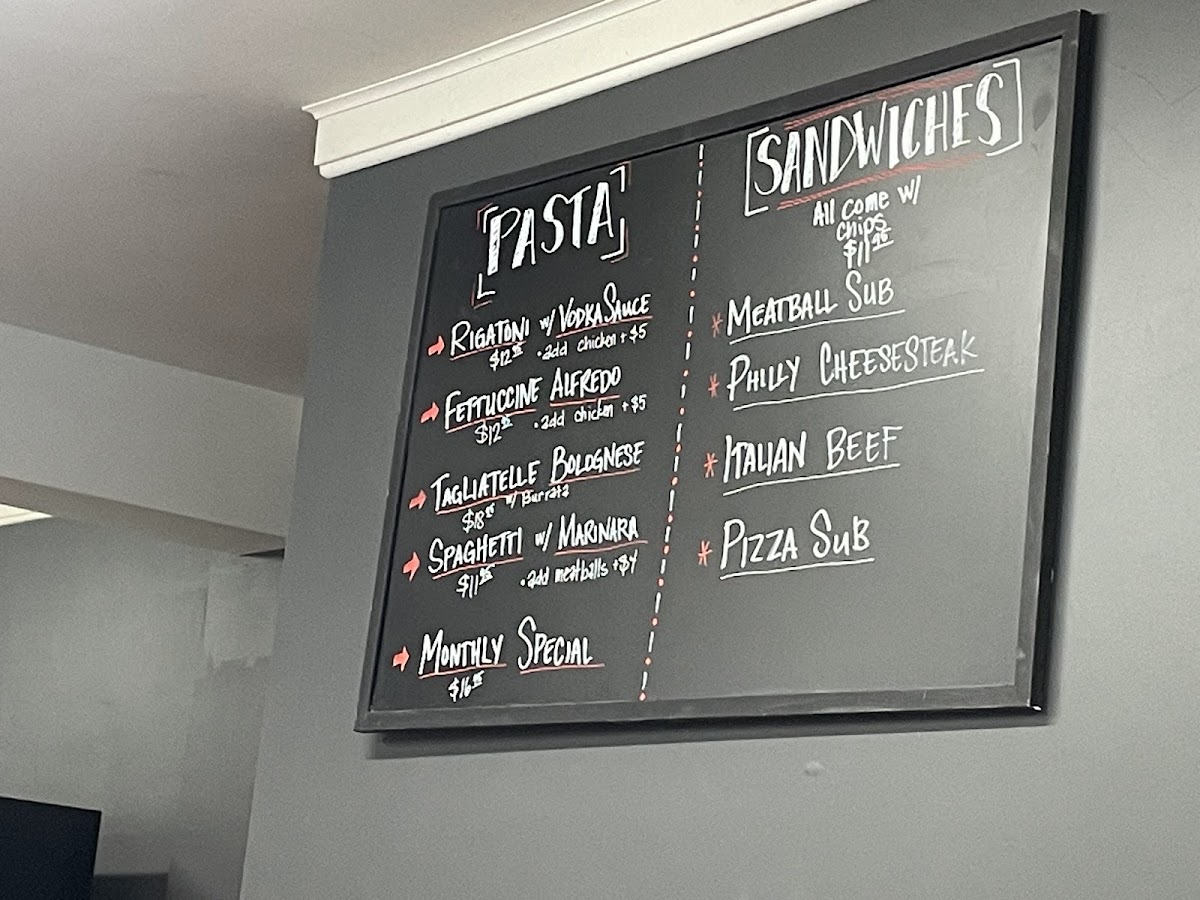 PASTA
RIGATONI w/ VODKA SAUCE
$12 • add chicken + $5
FETTUCCINE ALFREDO
$12 • add chicken + $5
TAGLIATELLE BOLOGNESE
$18 w/ Burrata
SPAGHETTI w/ MARINARA
$11 • add meatballs + $4
MONTHLY SPECIAL
$16
SANDWICHES
All come w/
chips
$11
* MEATBALL SUB
* PHILLY CHEESESTEAK
* ITALIAN BEEF
* PIZZA SUB